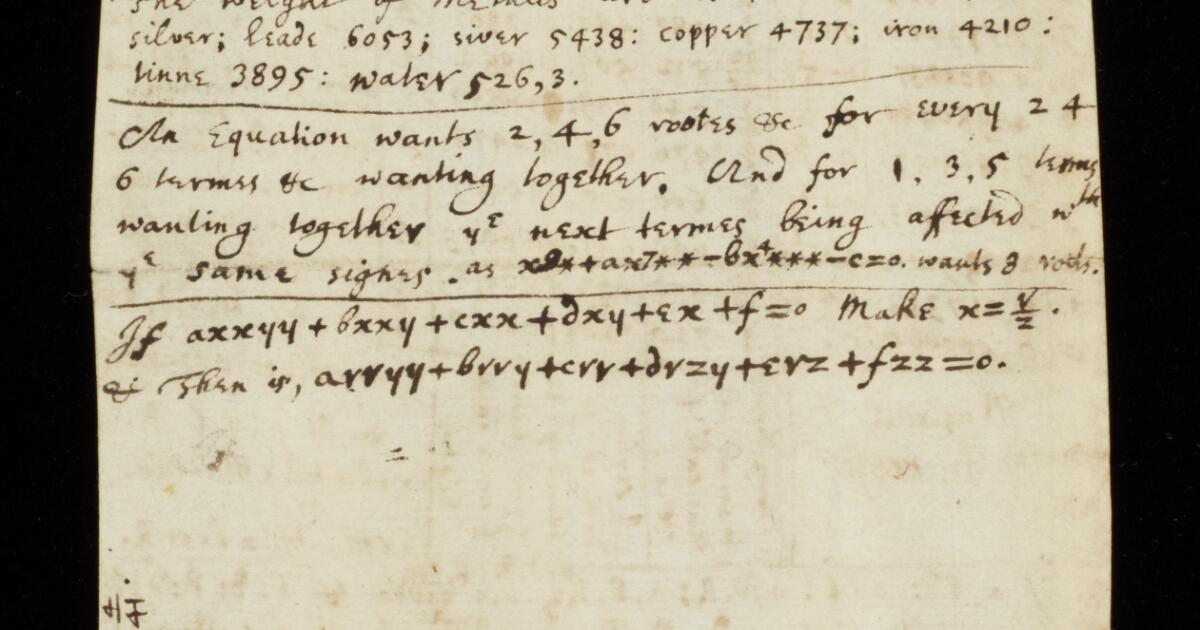 The weight of Mettals
silver; leade 6053; siver 5438: copper 4737; iron 4210:
tinne 3895: water 526,3.
An Equation wants 2, 4, 6 rootes &c for every 2 4
6 termes &c wanting together. And for 1, 3, 5 termes
wanting together yᵉ next termes being affected wᵗʰ
yᵉ same signes. as **+ax7**-bx⁴***-c=0. wants 8 roots.
If axxyy+bxxy+cxx+dxy+ex+f=0 Make x=r/z.
& Then is, arryy+brry+crr+drzy+erz+fzz=0.